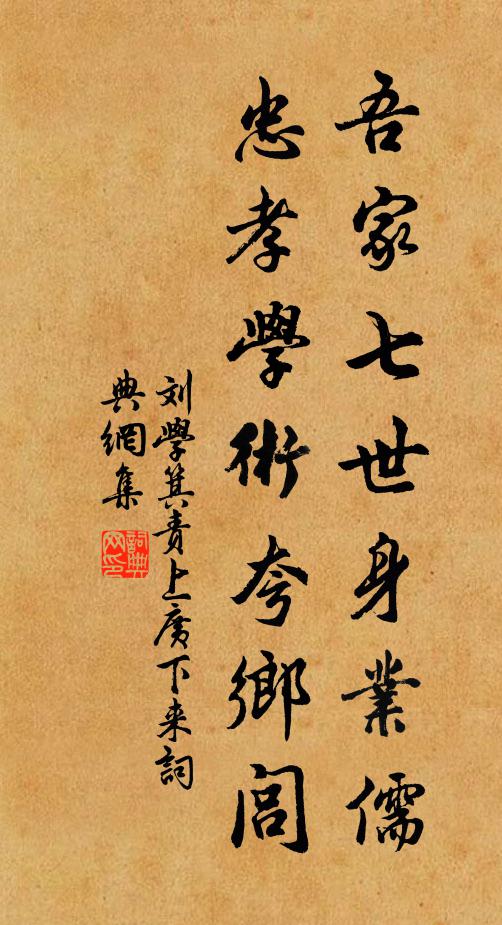 吾家七世身業儒
忠孝學術夸鄉閭
刘學箕責上廣下来詞
典網集
詞典
网印